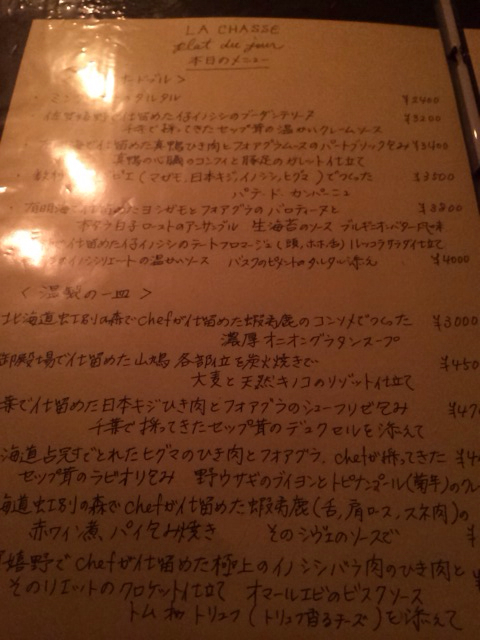 LA CHASSE
plat du jour
本日のメニュー
ドブル >
タルタル ¥2400
仔イノシシのブーダンテリーヌ ¥3200
採ってきたセップ茸の温かいクレームソース
で仕留めた真鴨ひき肉とフォアグラムースのパートブリック包み ¥3400
真鴨の心臓のコンフィと豚足のガレット仕立て
ピエ (マガモ、日本キジ、イノシシ、ヒグマ) でつくった ¥3500
パテ・ド・カンパーニュ
有明海で仕留めたヨシガモとフォアグラのバロティーヌと ¥3800
白子ローストのアンサンブル 生海苔のソースブルギニオンバター風味
仕留めた仔イノシシのテートフロマージュ (頭、ホホ、舌) ルッコラサラダ仕立て
イノシシリエットの温かいソース バスクのピメントのタルタル添え ¥4000
< 温製の一皿 >
北海道虹別の森でchefが仕留めた蝦夷鹿のコンソメでつくった ¥3000
濃厚オニオングラタンスープ
御殿場で仕留めた山鳩 各部位を炭火焼きで ¥450
大麦と天然キノコのリゾット仕立て
葉で仕留めた日本キジひき肉とフォアグラのシューフリゼ包み ¥47
千葉で採ってきたセップ茸のデュクセルを添えて
海道占冠でとれたヒグマのひき肉とフォアグラ、chefが採ってきた ¥4
セップ茸のラビオリ包み 野ウサギのブイヨンとトピナンブール(菊芋)のクレ
海道虹別の森でchefが仕留めた蝦夷鹿(舌、肩ロース、スネ肉)の
赤ワイン煮、パイ包み焼き そのシヴェのソースで ¥
嬉野でchefが仕留めた極上のイノシシバラ肉のひき肉と
そのリエットのクロケット仕立て オマールエビのビスクソース
トム オ トリュフ (トリュフ香るチーズ) を添えて